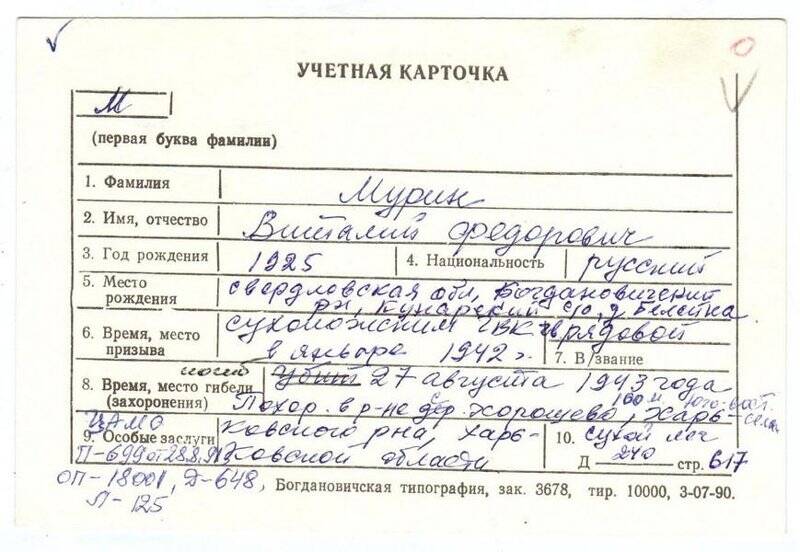 УЧЕТНАЯ КАРТОЧКА
М
(первая буква фамилии)
1. Фамилия Мурин
2. Имя, отчество Виталий Федорович
3. Год рождения 1925 4. Национальность русский
5. Место рождения Свердловская обл, Богдановичский
р-н, Кунарский с/о, д. Белейка
6. Время, место призыва Сухоложским РВК
в январе 1942 г.
7. В/звание рядовой
8. Время, место гибели (захоронения) погиб Убит 27 августа 1943 года
100 м. юго-вост. села
Похор. в р-не Хорошево, Харь-
ковского р-на, Харь-
ковской области
9. Особые заслуги
10. Сухой лог
Д 240 стр. 617
ЦАМО
П-699 от 28.8.
ОП-18001, Д-648,
Л-125
Богдановичская типография, зак. 3678, тир. 10000, 3-07-90.